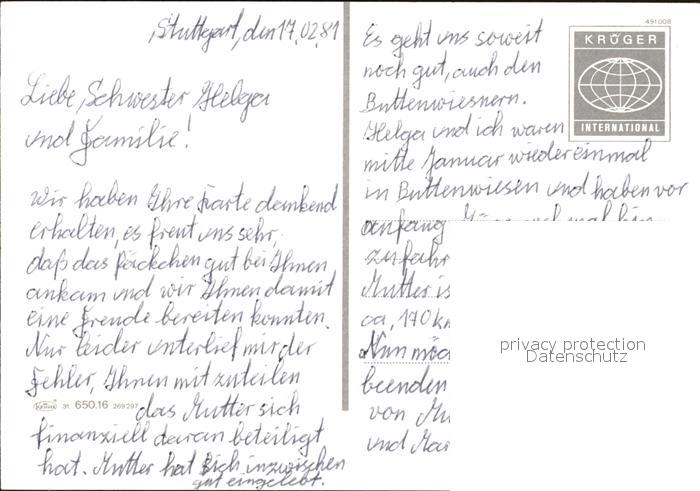 Stuttgart, den 17.02.81
Liebe, Schwester Helga
und Familie!
Wir haben Ihre Karte dankend
erhalten, es freut uns sehr,
daß das Päckchen gut bei Ihnen
ankam und wir Ihnen damit
eine Freude bereiten konnten.
Nur leider unterlief mir der
Fehler, Ihnen mit zuteilen
das Mutter sich
finanziell daran beteiligt
hat. Mutter hat sich inzwischen
gut eingelebt.
Krüger 31 650.16 269 297
491008
KRÜGER
INTERNATIONAL
Es geht uns soweit
noch gut, auch den
Buttenwiesnern.
Helga und ich waren
mitte Januar wiedereinmal
in Buttenwiesen und haben vor
anfang März nochmal hin
zufahr
Mutter is
ca, 170 km
Nun möc
beenden
von Mu
und Mar
privacy protection
Datenschutz